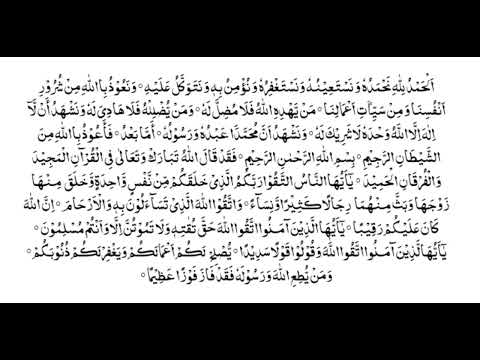 اَلْحَمْدُ لِلّٰهِ نَحْمَدُهٗ وَنَسْتَعِيْنُهٗ وَنَسْتَغْفِرُهٗ وَنُؤْمِنُ بِهٖ وَنَتَوَكَّلُ عَلَيْهِ ۰ وَنَعُوْذُ بِاللّٰهِ مِنْ شُرُوْرِ
اَنْفُسِنَا وَمِنْ سَيِّاٰتِ اَعْمَالِنَا ۰ مَنْ يَهْدِهِ اللّٰهُ فَلَا مُضِلَّ لَهٗ ۰ وَمَنْ يُّضْلِلْهُ فَلَا هَادِيَ لَهٗ وَنَشْهَدُ اَنْ لَّآ
اِلٰهَ اِلَّا اللّٰهُ وَحْدَهٗ لَا شَرِيْكَ لَهٗ ۰ وَنَشْهَدُ اَنَّ مُحَمَّدًا عَبْدُهٗ وَرَسُوْلُهٗ ۰ اَمَّا بَعْدُ ۰ فَاَعُوْذُ بِاللّٰهِ مِنَ
الشَّيْطَانِ الرَّجِيْمِ ۰ بِسْمِ اللّٰهِ الرَّحْمٰنِ الرَّحِيْمِ ۰ فَقَدْ قَالَ اللّٰهُ تَبَارَكَ وَتَعَالٰى فِي الْقُرْآنِ الْمَجِيْدِ
وَالْفُرْقَانِ الْحَمِيْدِ ۰ يٰٓاَيُّهَا النَّاسُ اتَّقُوْا رَبَّكُمُ الَّذِيْ خَلَقَكُمْ مِّنْ نَّفْسٍ وَّاحِدَةٍ وَّخَلَقَ مِنْهَا
زَوْجَهَا وَبَثَّ مِنْهُمَا رِجَالًا كَثِيْرًا وَّنِسَآءً ۰ وَاتَّقُوا اللّٰهَ الَّذِيْ تَسَآءَلُوْنَ بِهٖ وَالْاَرْحَامَ ۰ اِنَّ اللّٰهَ
كَانَ عَلَيْكُمْ رَقِيْبًا ۰ يٰٓاَيُّهَا الَّذِيْنَ آمَنُوا اتَّقُوا اللّٰهَ حَقَّ تُقٰتِهٖ وَلَا تَمُوْتُنَّ اِلَّا وَاَنْتُمْ مُّسْلِمُوْنَ ۰
يٰٓاَيُّهَا الَّذِيْنَ آمَنُوا اتَّقُوا اللّٰهَ وَقُوْلُوْا قَوْلًا سَدِيْدًا ۰ يُّصْلِحْ لَكُمْ اَعْمَالَكُمْ وَيَغْفِرْ لَكُمْ ذُنُوْبَكُمْ ۰
وَمَنْ يُّطِعِ اللّٰهَ وَرَسُوْلَهٗ فَقَدْ فَازَ فَوْزًا عَظِيْمًا ۰